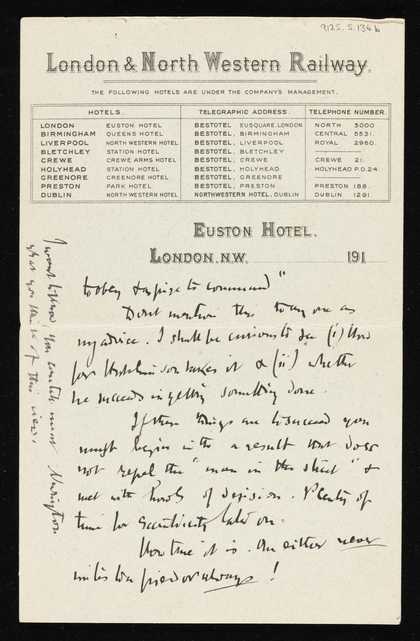 9125. S. 134 b
London & North Western Railway.
THE FOLLOWING HOTELS ARE UNDER THE COMPANY'S MANAGEMENT.
HOTELS. TELEGRAPHIC ADDRESS. TELEPHONE NUMBER.
LONDON EUSTON HOTEL BESTOTEL, EUSQUARE, LONDON NORTH 3000
BIRMINGHAM QUEENS HOTEL BESTOTEL, BIRMINGHAM CENTRAL 5531.
LIVERPOOL NORTH WESTERN HOTEL BESTOTEL, LIVERPOOL ROYAL 2960.
BLETCHLEY STATION HOTEL BESTOTEL, BLETCHLEY
CREWE CREWE ARMS HOTEL BESTOTEL, CREWE CREWE 21.
HOLYHEAD STATION HOTEL BESTOTEL, HOLYHEAD HOLYHEAD P.O.24.
GREENORE GREENORE HOTEL BESTOTEL, GREENORE
PRESTON PARK HOTEL BESTOTEL, PRESTON PRESTON 188.
DUBLIN NORTH WESTERN HOTEL NORTHWESTERN HOTEL, DUBLIN DUBLIN 1291.
EUSTON HOTEL.
LONDON, N.W. 191
to obey & aspire to command"
Don't mention this to any one as
my advice. I shall be curious to see (i) how
far Hutchinson takes it & (ii) whether
he succeeds in getting something done.
If these things are to succeed you
must begin with a result that does
not repel the "man in the street" &
met with howls of derision. Plenty of
time for eccentricity later on.
How true it is. One either never
writes to a friend or always!
I want to know
what you think of this view.